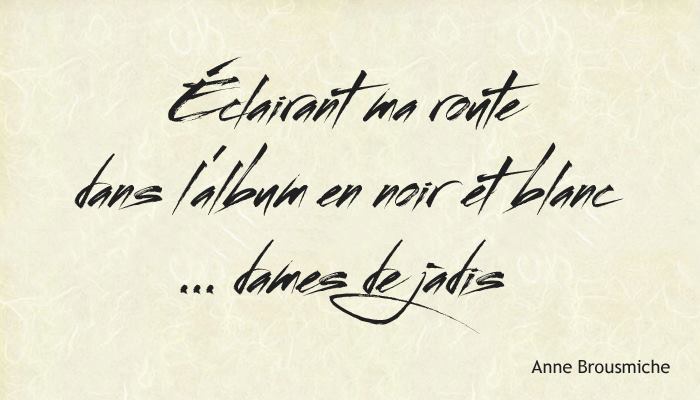 Éclairant ma route
dans l'album en noir et blanc
... dames de jadis
Anne Brousmiche